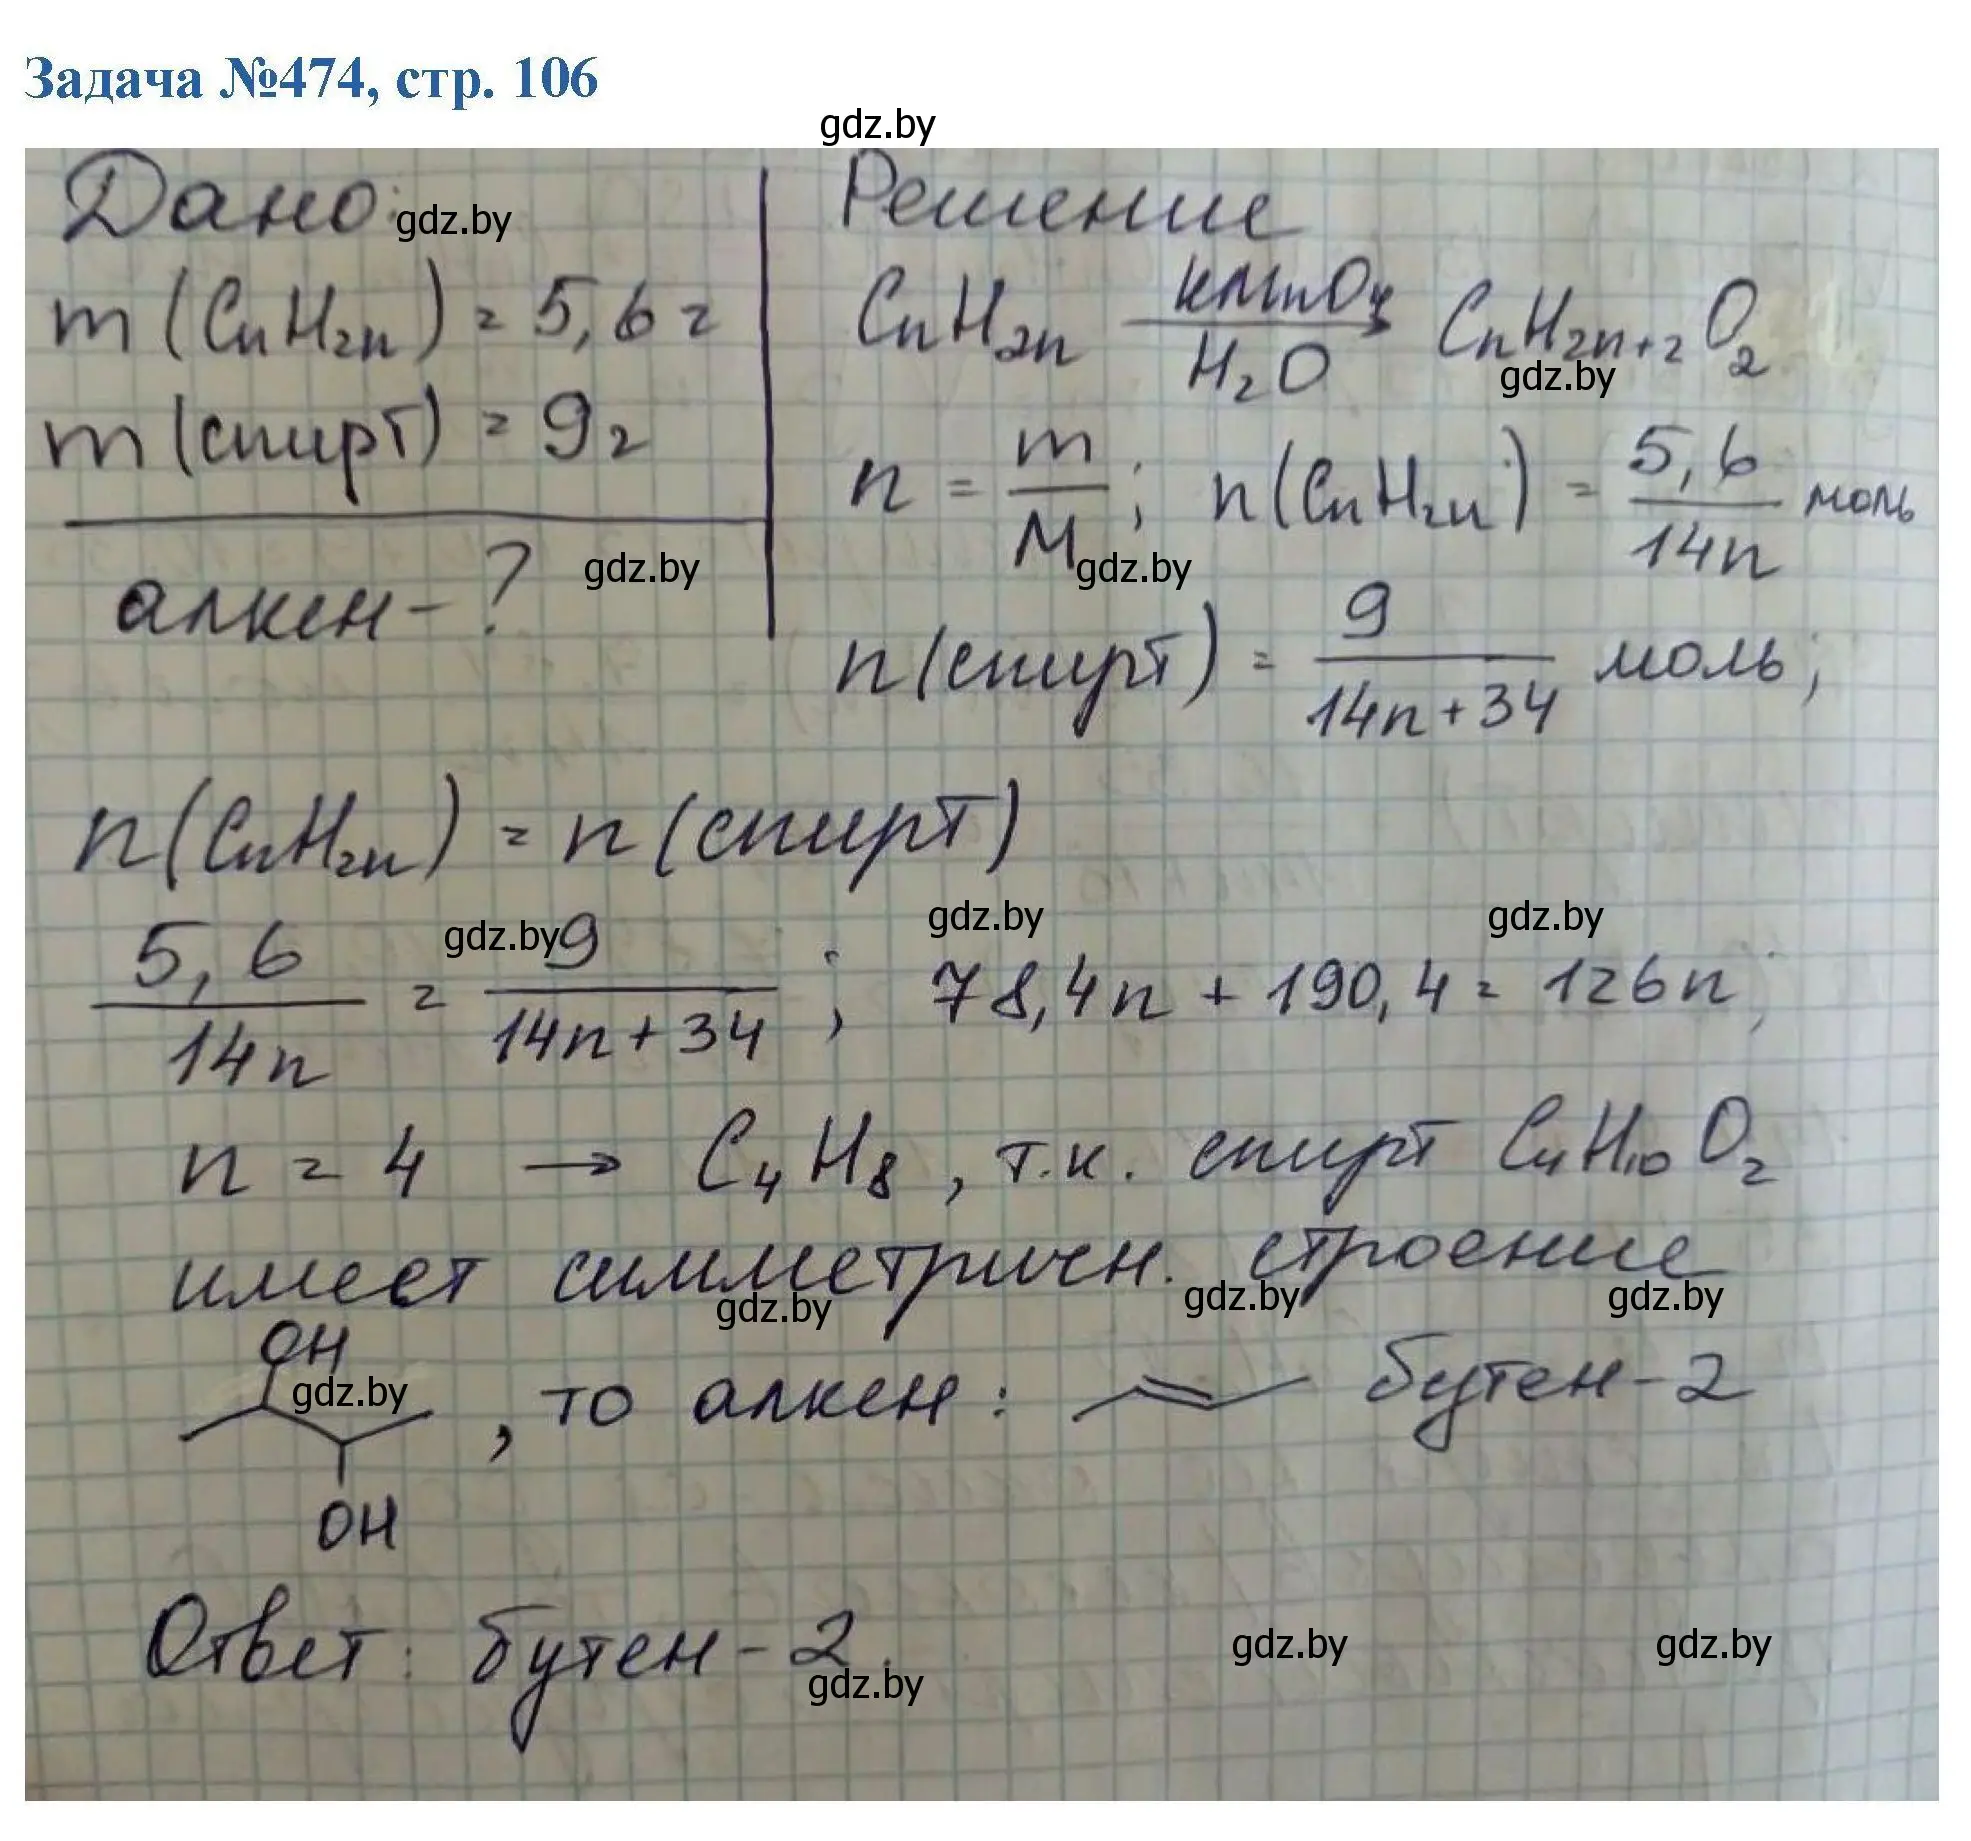 Задача №474, стр. 106
gdz.by
Дано: gdz.by
m (CnH2n) = 5,6 г
m (спирт) = 9 г
алкен - ? gdz.by
Решение
CnH2n KMnO4 / H2O CnH2n+2O2
gdz.by
n = m/M; n(CnH2n) = 5,6/14n моль
gdz.by
n(спирт) = 9/14n+34 моль;
n(CnH2n) = n(спирт)
gdz.by gdz.by gdz.by
5,6/14n = 9/14n+34; 78,4n + 190,4 = 126n;
n = 4 → C4H8, т.к. спирт C4H10O2
имеет симметричн. строение
gdz.by gdz.by gdz.by
OH
gdz.by
, то алкен: бутен-2
OH
Ответ: бутен-2.
gdz.by gdz.by gdz.by